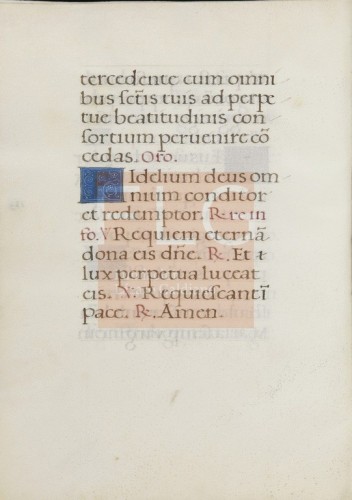 tercedente cum omni
bus sctis tuis ad perpe
tue beatitudinis con
sortium peruenire cō
cedas. Oro.
Fidelium deus om
nium conditor
et redemptor. Re re in
fo. V Requiem eternā
dona eis dñe. R. Et
lux perpetua luceat
eis. V. Requiescant ī
pace. R. Amen.
FLG